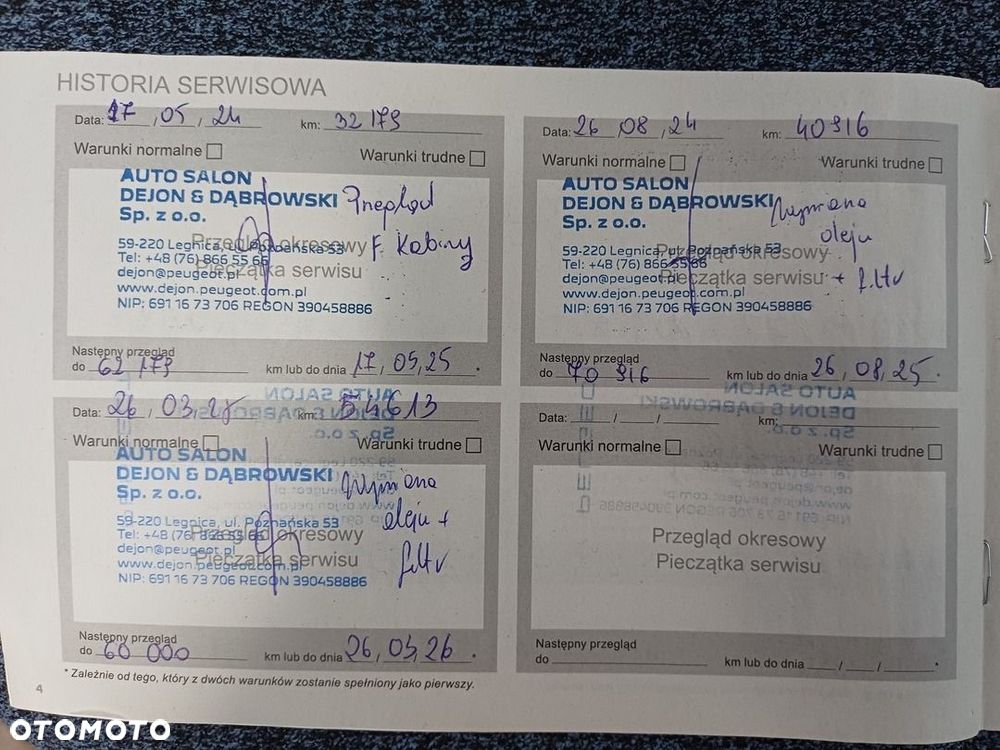 HISTORIA SERWISOWA
Data: 17, 05, 24 km: 32 179
Warunki normalne Warunki trudne
AUTO SALON
DEJON & DĄBROWSKI
Sp. z o.o.
Przegląd
F. Kabiny
Przegląd okresowy
Pieczątka serwisu
59-220 Legnica, ul. Poznańska 53
Tel: +48 (76) 866 55 66
dejon@peugeot.pl
www.dejon.peugeot.com.pl
NIP: 691 16 73 706 REGON 390458886
Następny przegląd
do 62 179 km lub do dnia 17, 05, 25 *
Data: 26, 08, 24 km: 40916
Warunki normalne Warunki trudne
AUTO SALON
DEJON & DĄBROWSKI
Sp. z o.o.
Wymiana
oleju
+ filtr
Przegląd okresowy
Pieczątka serwisu
59-220 Legnica, ul. Poznańska 53
Tel: +48 (76) 866 55 66
dejon@peugeot.pl
www.dejon.peugeot.com.pl
NIP: 691 16 73 706 REGON 390458886
Następny przegląd
do 70 916 km lub do dnia 26, 08, 25 *
Data: 26, 03, 25 km: 54613
Warunki normalne Warunki trudne
AUTO SALON
DEJON & DĄBROWSKI
Sp. z o.o.
Wymiana
oleju +
filtr
Przegląd okresowy
Pieczątka serwisu
59-220 Legnica, ul. Poznańska 53
Tel: +48 (76) 866 55 66
dejon@peugeot.pl
www.dejon.peugeot.com.pl
NIP: 691 16 73 706 REGON 390458886
Następny przegląd
do 60 000 km lub do dnia 26, 03, 26 *
Data: / / km:
Warunki normalne Warunki trudne
Przegląd okresowy
Pieczątka serwisu
Następny przegląd
do km lub do dnia / / *
* Zależnie od tego, który z dwóch warunków zostanie spełniony jako pierwszy.
4
OTOMOTO